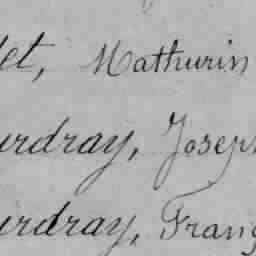 let, Mathurin
urdray, Joseph
urdray, Franç